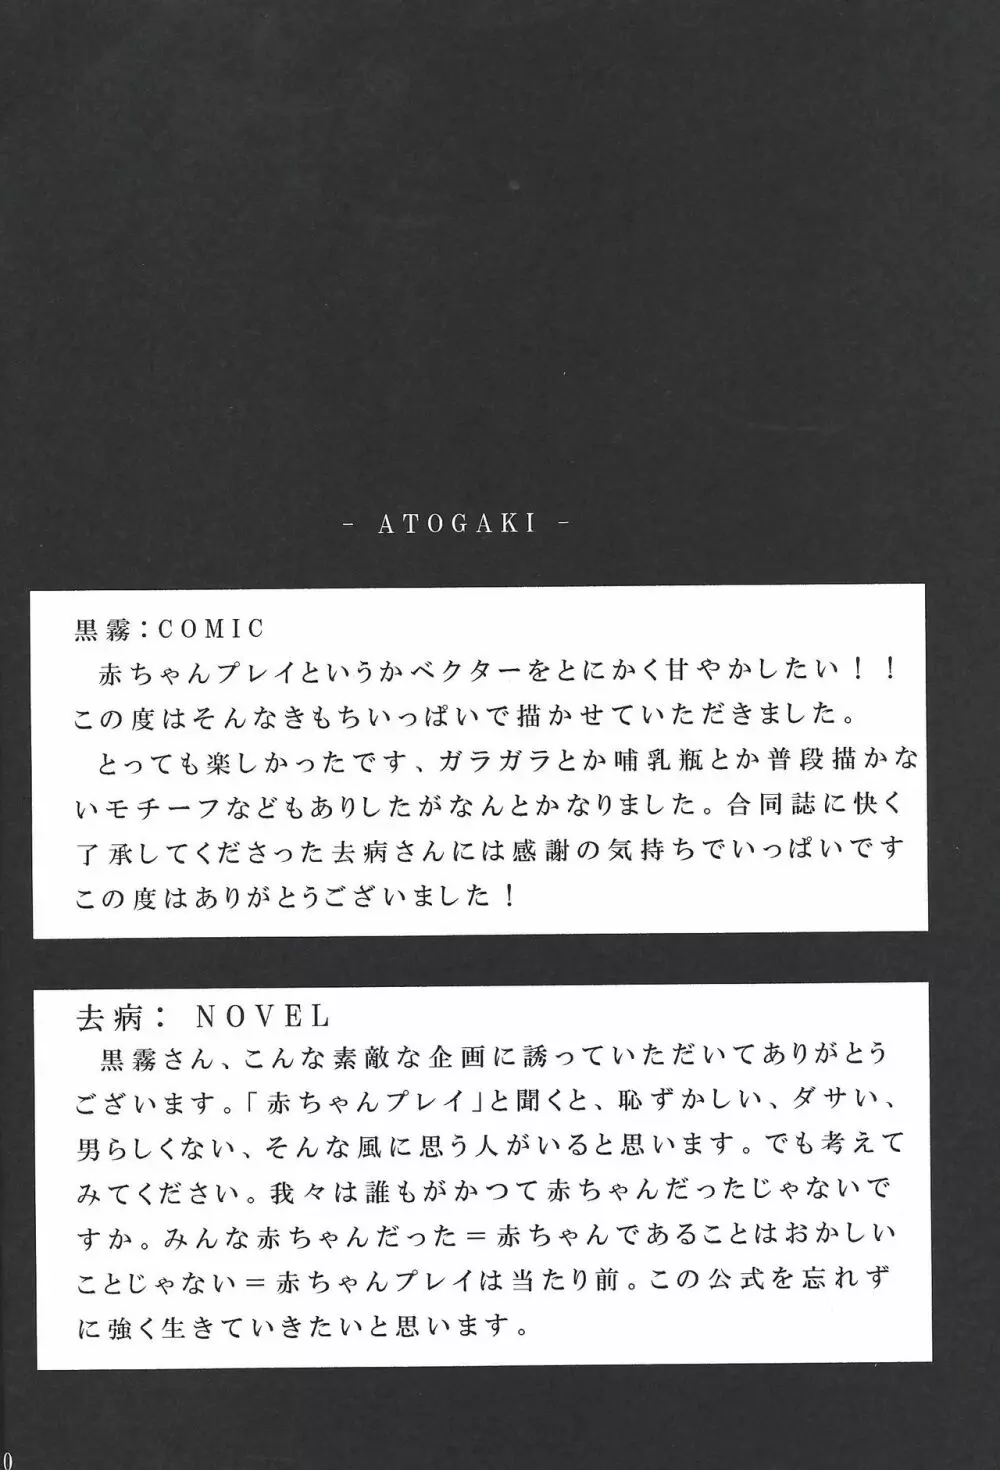 - ATOGAKI -
黒霧：COMIC
赤ちゃんプレイというかベクターをとにかく甘やかしたい！！
この度はそんなきもちいっぱいで描かせていただきました。
とっても楽しかったです、ガラガラとか哺乳瓶とか普段描かな
いモチーフなどもありしたがなんとかなりました。合同誌に快く
了承してくださった去病さんには感謝の気持ちでいっぱいです
この度はありがとうございました！
去病： NOVEL
黒霧さん、こんな素敵な企画に誘っていただいてありがとう
ございます。「赤ちゃんプレイ」と聞くと、恥ずかしい、ダサい、
男らしくない、そんな風に思う人がいると思います。でも考えて
みてください。我々は誰もがかつて赤ちゃんだったじゃないで
すか。みんな赤ちゃんだった＝赤ちゃんであることはおかしい
ことじゃない＝赤ちゃんプレイは当たり前。この公式を忘れず
に強く生きていきたいと思います。
0